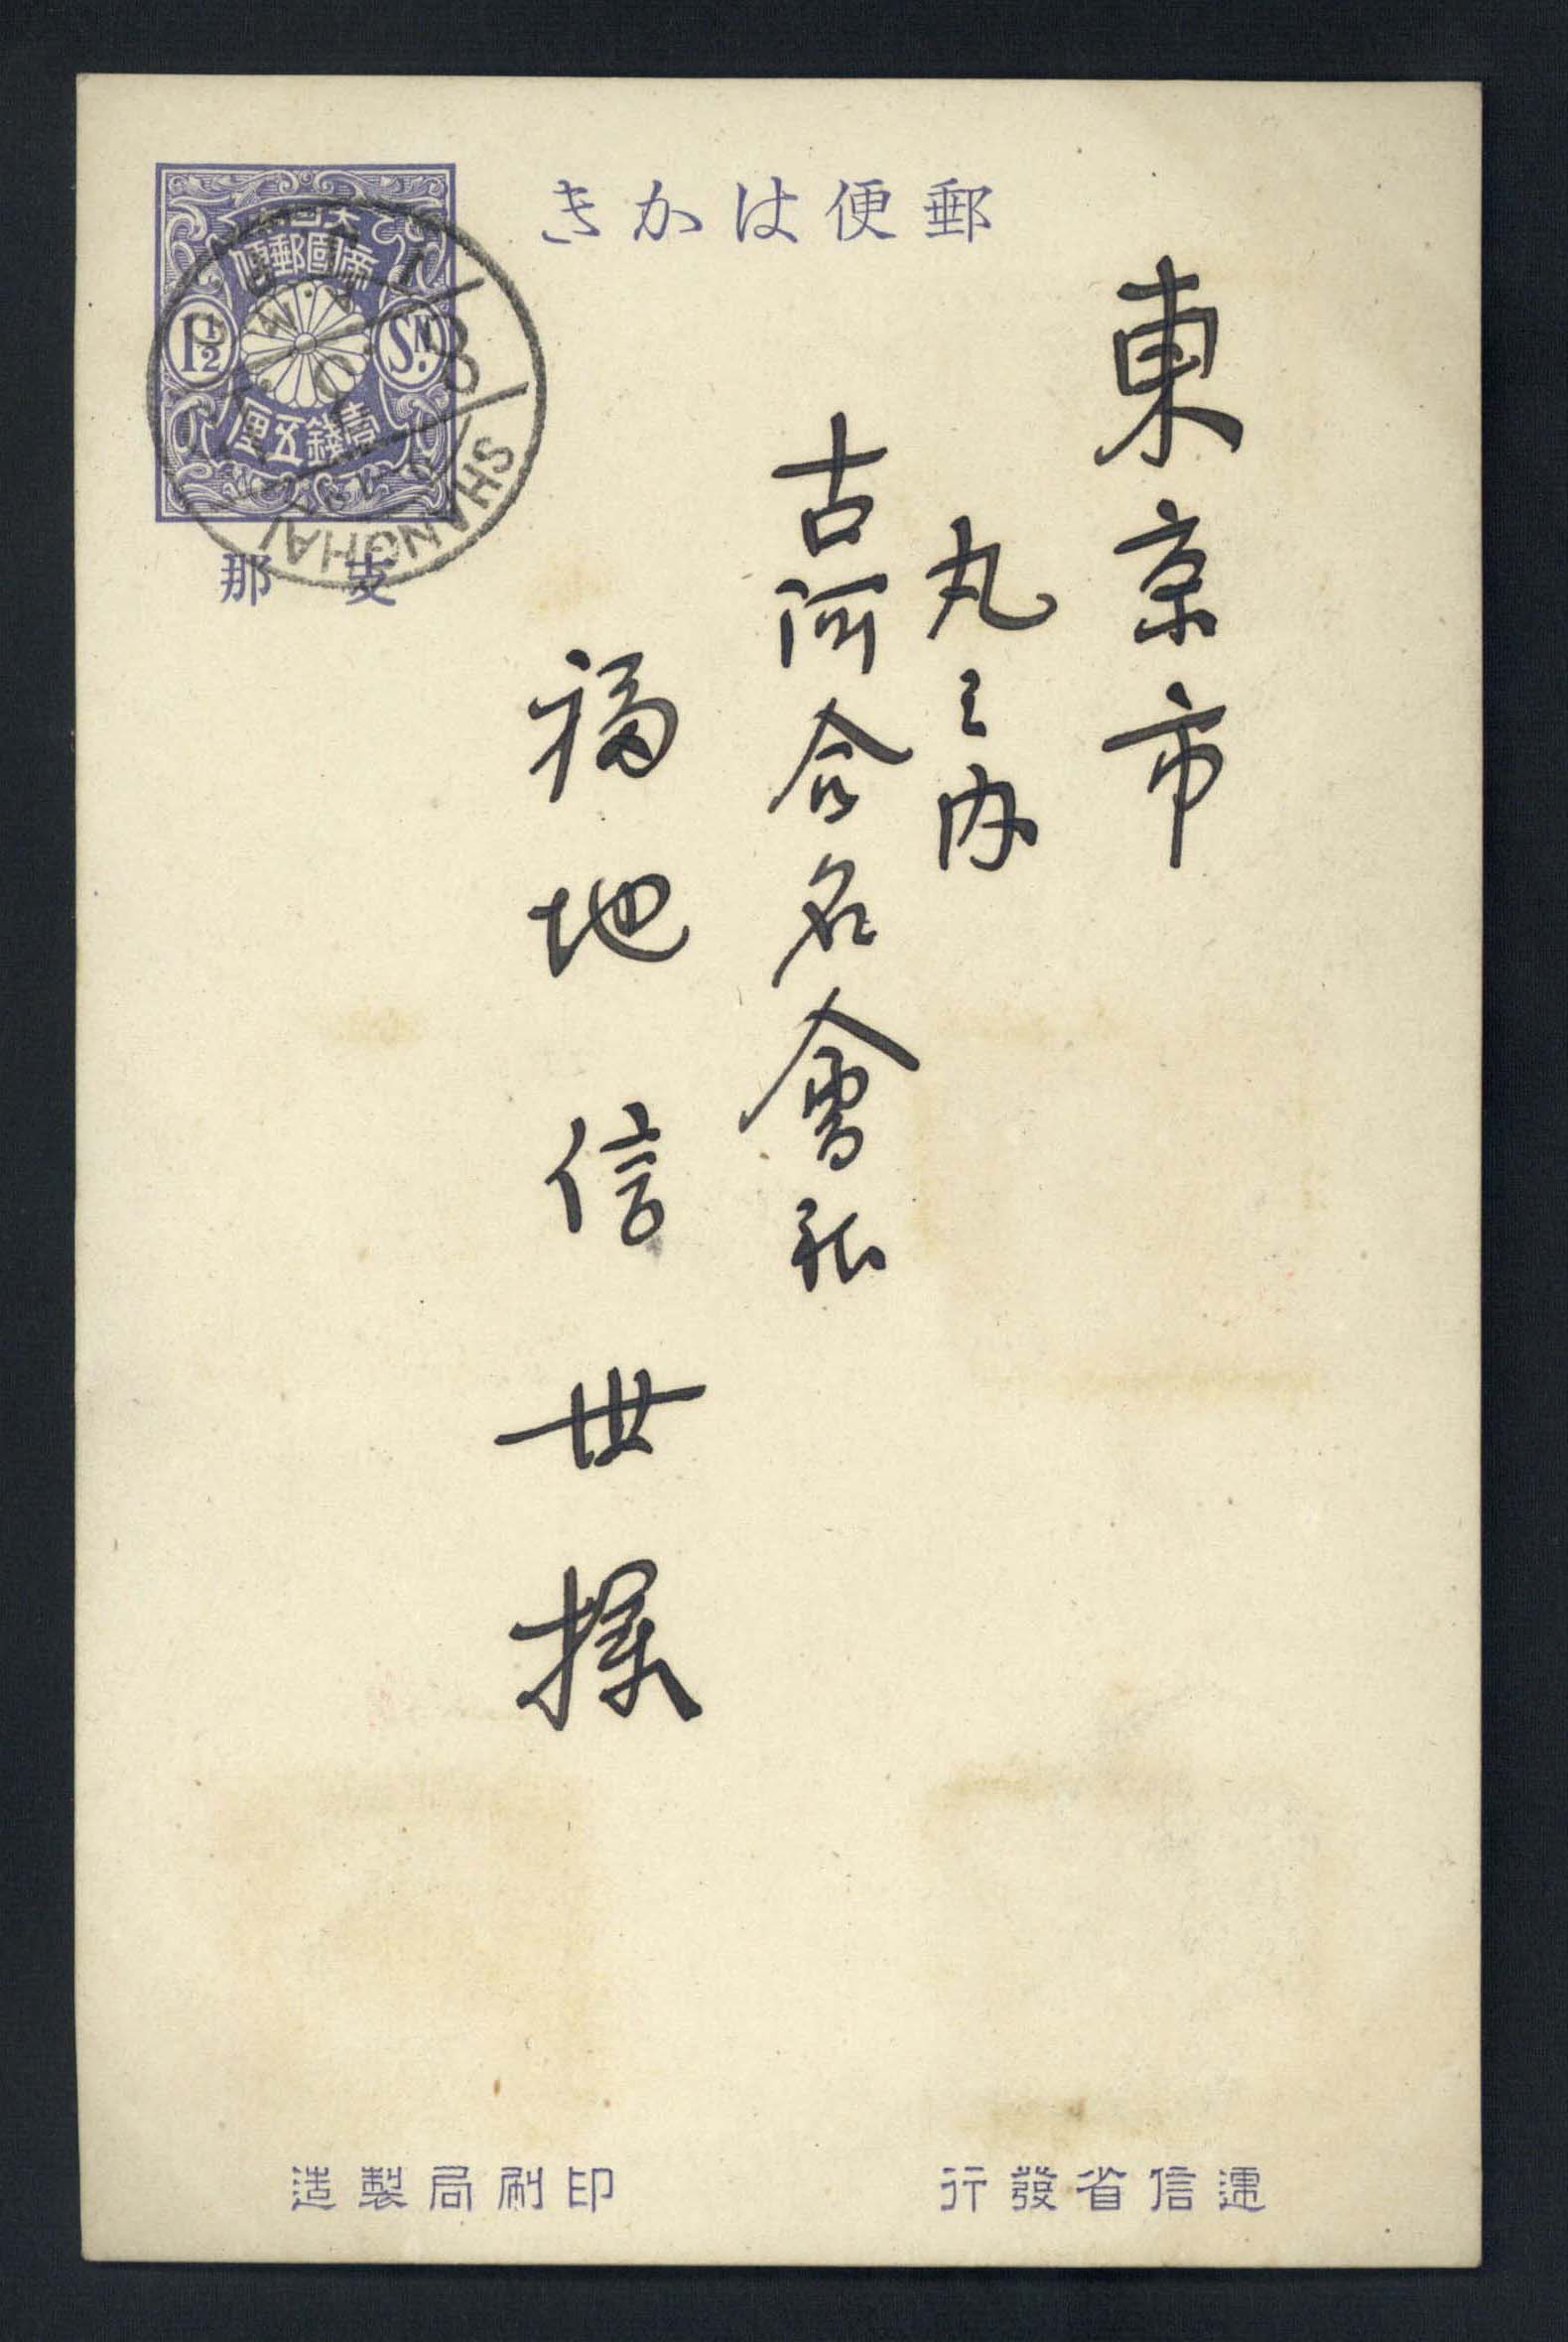 郵便はかき
大日本
帝國郵便
1½ Sn.
壹錢五厘
SHANGHAI
支那
東京市
丸之内
古河合名會社
福地信世様
逓信省發行
印刷局製造